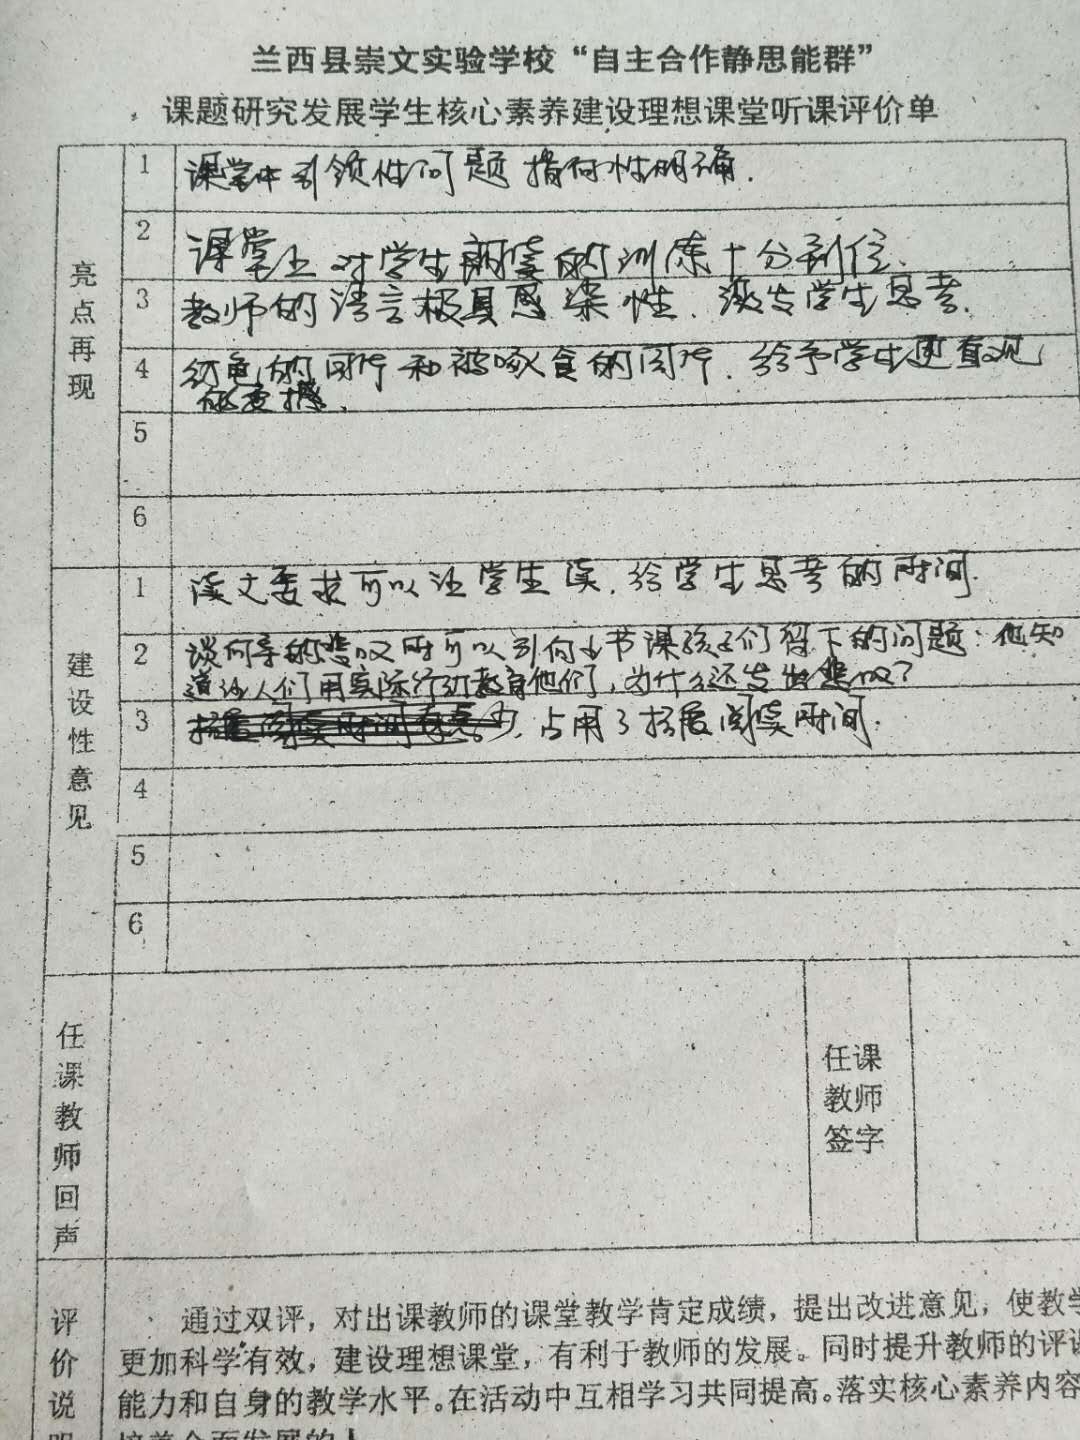 兰西县崇文实验学校“自主合作静思能群”
课题研究发展学生核心素养建设理想课堂听课评价单
亮点再现
1 课堂中引领性问题指向性明确.
2 课堂上对学生朗读的训练十分到位.
3 教师的语言极具感染性.激发学生思考.
4 红色的图片和被啄食的图片.给予学生更直观
的震撼.
5
6
建设性意见
1 读文要求可以让学生读.给学生思考的时间.
2 谈何等的悲叹时可以引向上节课孩子们留下的问题:他知
道让人们用实际行动教育他们,为什么还发出悲叹?
3 拓展阅读时间有点少,占用了拓展阅读时间.
4
5
6
任课教师回声
任课
教师
签字
评价说明
通过双评，对出课教师的课堂教学肯定成绩，提出改进意见，使教学
更加科学有效，建设理想课堂，有利于教师的发展。同时提升教师的评课
能力和自身的教学水平。在活动中互相学习共同提高。落实核心素养内容
培养全面发展的人